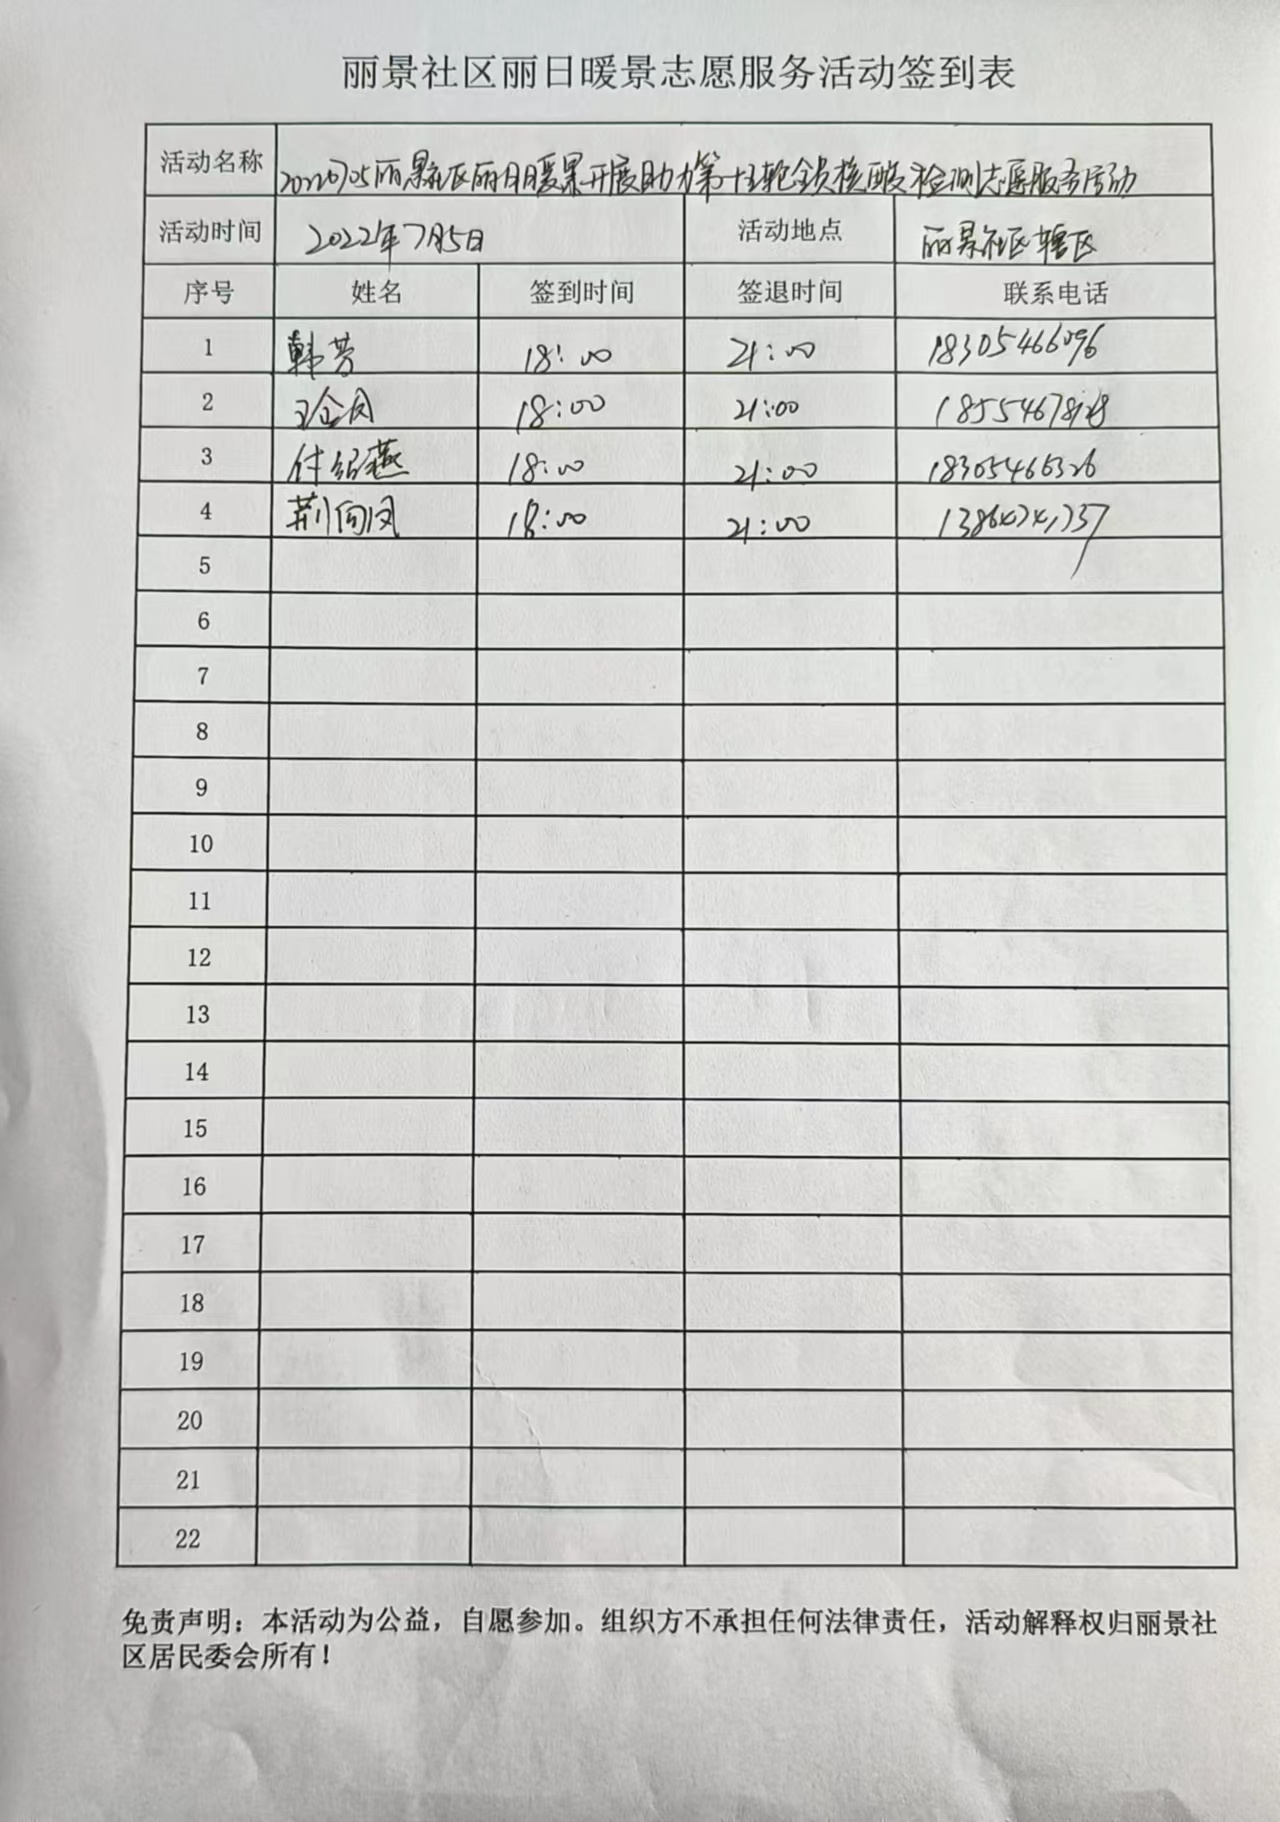 丽景社区丽日暖景志愿服务活动签到表
活动名称 20220705丽景社区丽日暖景开展助力第十五轮全员核酸检测志愿服务活动
活动时间 2022年7月5日 活动地点 丽景社区辖区
序号 姓名 签到时间 签退时间 联系电话
1 韩芳 18:00 21:00 18305466096
2 18:00 21:00
3 付绍燕 18:00 21:00 18305466326
4 荆向凤 18:00 21:00
5
6
7
8
9
10
11
12
13
14
15
16
17
18
19
20
21
22
免责声明：本活动为公益，自愿参加。组织方不承担任何法律责任，活动解释权归丽景社
区居民委会所有！